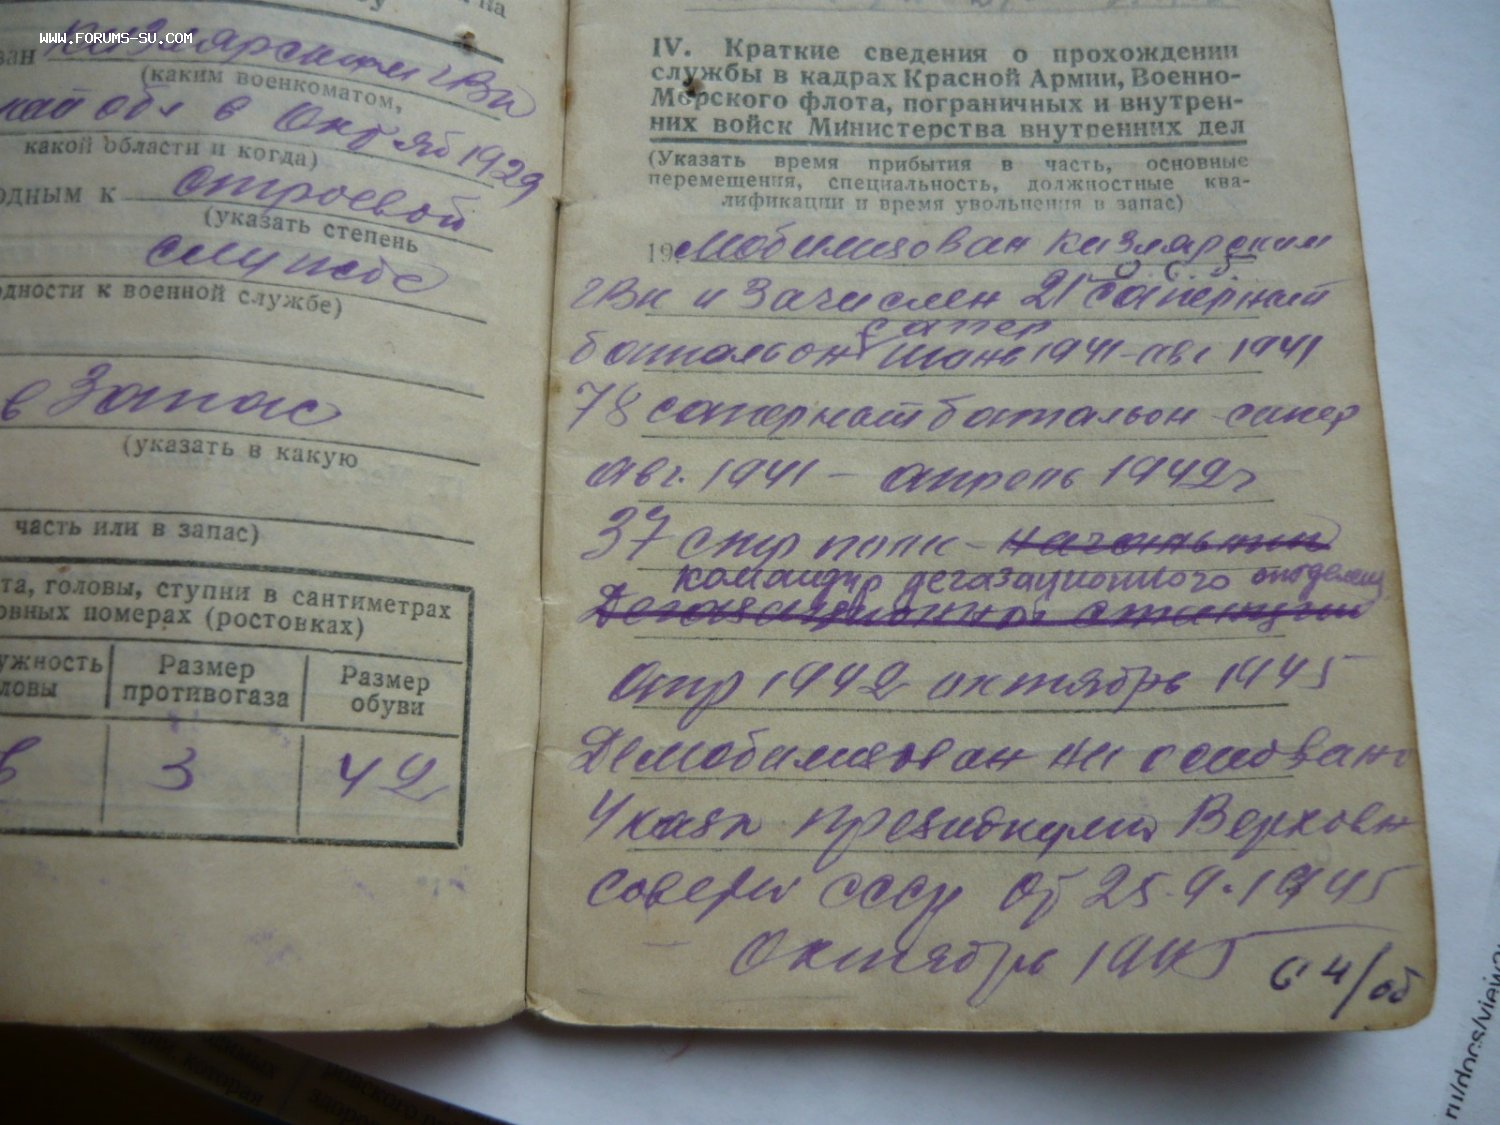 www.FORUMS-SU.com
на
ван Кизлярским гВк
(каким военкоматом,
обл в Октяб 1929
какой области и когда)
одным к строевой
(указать степень
службе
одности к военной службе)
в Запас
(указать в какую
часть или в запас)
та, головы, ступни в сантиметрах
овных номерах (ростовках)
ужность
ловы
Размер
противогаза
Размер
обуви
3
42
IV. Краткие сведения о прохождении
службы в кадрах Красной Армии, Военно-
Морского флота, пограничных и внутрен-
них войск Министерства внутренних дел
(Указать время прибытия в часть, основные
перемещения, специальность, должностные ква-
лификации и время увольнения в запас)
19 Мобилизован Кизлярским
гВк и Зачислен 21 саперный
сапер
батальон Июнь 1941-авг 1941
78 саперный батальон-сапер
авг. 1941 - апрель 1942г
37 стр полк - начальник
командир дегазационного отделен
Дегазационной станции
Апр 1942 октябрь 1945
Демобилизован на основван
Указа президиума Верховн
совета СССР От 25.9.1945
Октябрь 1945
64/об
димых
которая
ru/docs/view